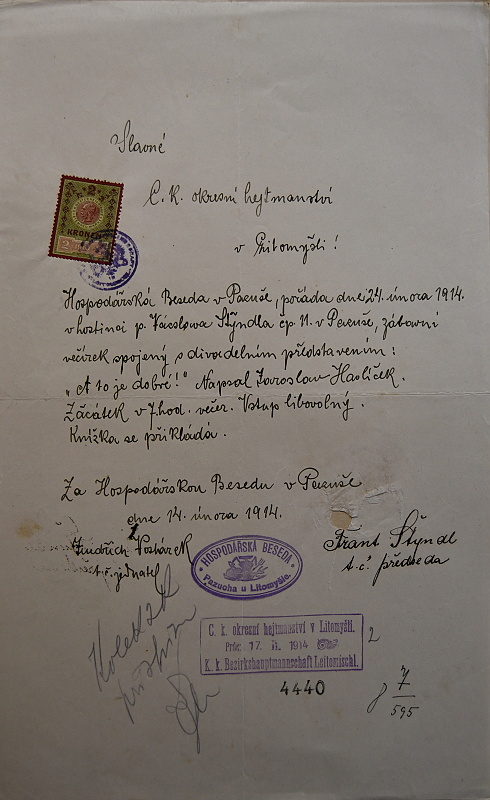 Slavné
C. k. okresní hejtmanství
v Litomyšli!
2
KRONEN
2
Hospodářská Beseda v Pazuše, pořádá dne 24. února 1914.
v hostinci p. Václava Štýndla čp. 11. v Pazuše, zábavní
večírek spojený s divadelním představením:
„A to je dobré!" Napsal Jaroslav Havlíček.
Začátek v 7 hod. večer. Vstup libovolný.
Knížka se přikládá.
Za Hospodářskou Besedu v Pazuše
dne 14. února 1914.
Jindřich
t. č. jednatel
HOSPODÁŘSKÁ BESEDA
Pazucha u Litomyšle.
Frant Štýndl
t. č. předseda
C. k. okresní hejtmanství v Litomyšli.
Präs: 17. II. 1914
K. k. Bezirkshauptmannschaft Leitomischl.
2
4440
7
595